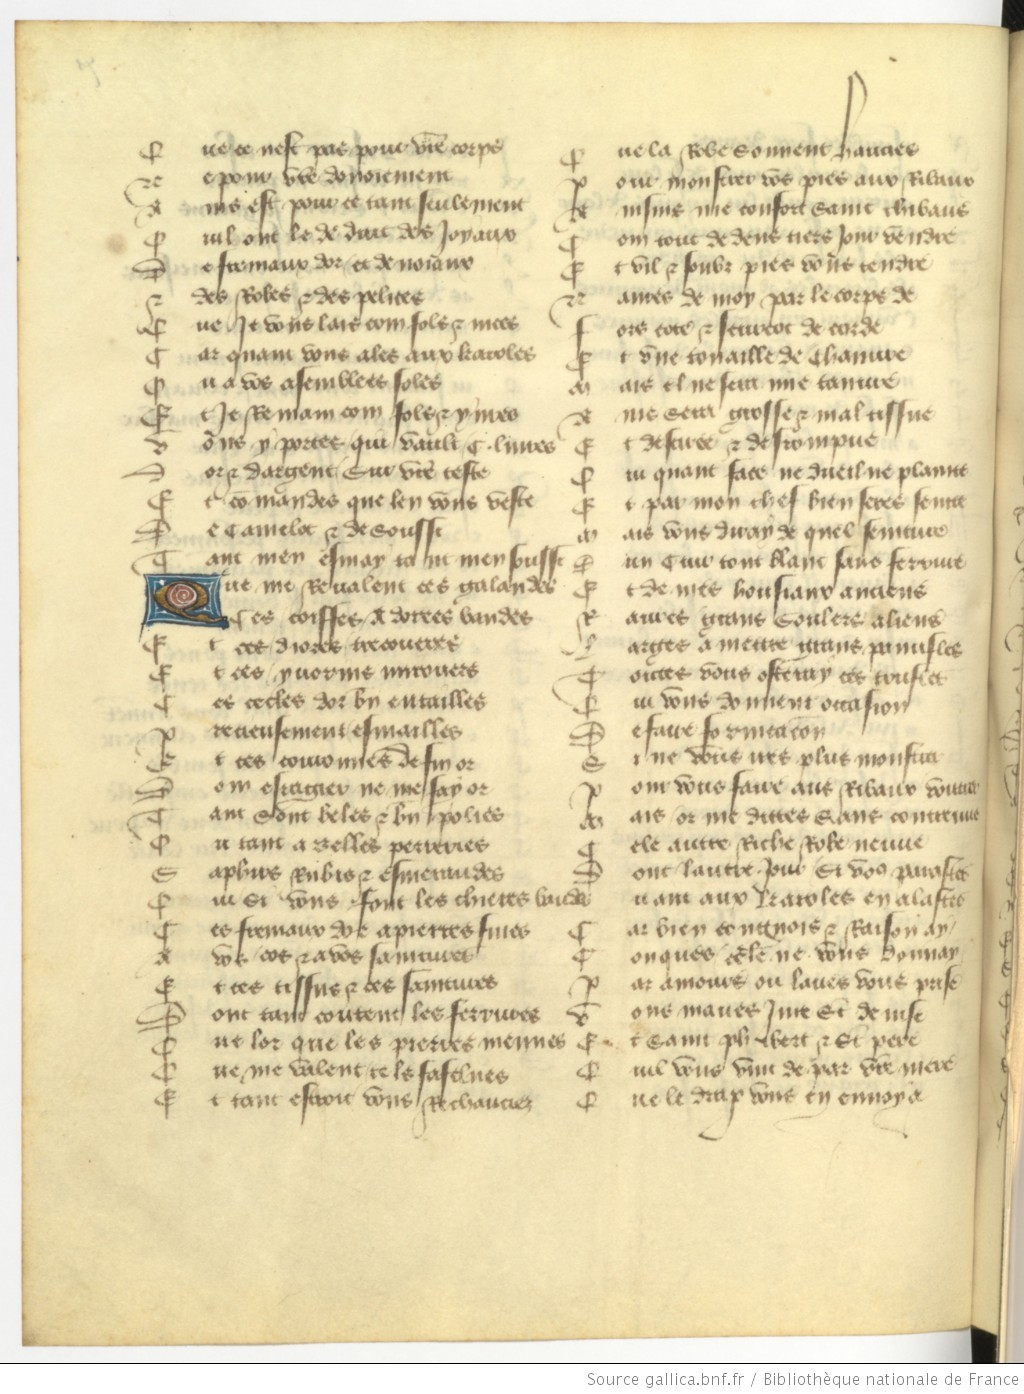 Que ce nest pas pour vr̃e corps
Ne pour vr̃e donoiement
Ains est pour ce tant seulement
Quil ont le deduit des Joyaux
De fremaux dor et de noiaux
Et des Robes & des pelices
Que Je vous lais com fols & nices
Car quant vous ales aux karoles
Ou a vos asemblees foles
Et Je Remain com fols & yures
Vous y portes qui vault C. liures
Dor & dargent sur vr̃e teste
Et comandes que len vous veste
De Camelot & de
Tant men esmay tant men
Que me Reualent ces galandes
Ces coiffes A dorees bandes
Et ces diores trecoueres
Et ces yuorins miroers
Ces cecles dor bn entailles
Precieusement esmailles
Et ces couronnes de fin or
Dom esragier ne me fay or
Tant sont beles & bn polies
Ou tant a belles perreries
Saphirs Rubis & esmeraudes
Qui si vous font les chieres baudes
Ces fremaux dor a pierres fines
A vos cos & a vos
Et ces tissus & ces saintures
Dont tant coutent les ferrures
Que lor que les pierres menues
Que me valent tels fafelues
Et tant estroit vous Rechauciez
Que la Robe sonuent hauciez
Pour monstrer vos pies aux Ribaux
Ainsins me confort saint thibaus
Com tout dedens tiers Jour vendre
Et vil & soubz pies vous tendre
Naures de moy par le corps de
Fors cote & seurcot de corde
Et vne touaille de Chanure
Mais el ne sera mie tanure
Ains sera grosse & mal tissue
Et desciree & desrompue
Qui quant face ne dueil ne plainte
Et par mon chef bien seres sainte
Mais vous diray de quel seinture
Dun Cuir tout blanc sans ferrure
Et de mes housiaux anciens
Aures grans soulers a liens
Larges a mettre grans panufles
Toutes vous osteray ces trufles
Qui vous donnent occasion
De faire fornicacõn
Si ne vous ires plus monstrer
Pour vous faire aus Ribaux
Mais or me dittes sans contreuue
Cele autre Riche Robe neuue
Dont lautre Jour si vos parastes
Quant aux karoles en alastes
Car bien congnois & Raison ay
Conques cele ne vous donnay
Par amours ou laues vous prise
Vous maues Jure st̃ denise
Et saint philebert & st̃ pere
Quil vous vint de par vr̃e mere
Que le drap vous en ennoya